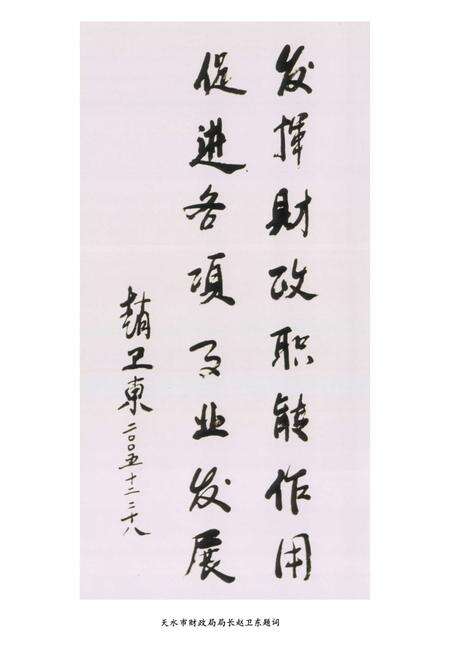 发挥财政职能作用
促进各项事业发展
趙卫東 二〇〇五 十二 二十八
天水市财政局局长赵卫东题词